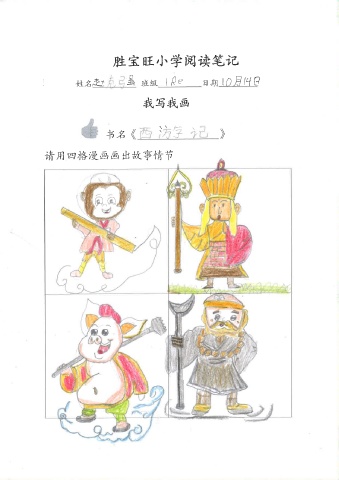 胜宝旺小学阅读笔记
姓名 班级 日期10月14日
我写我画
书名《西游记》
请用四格漫画画出故事情节